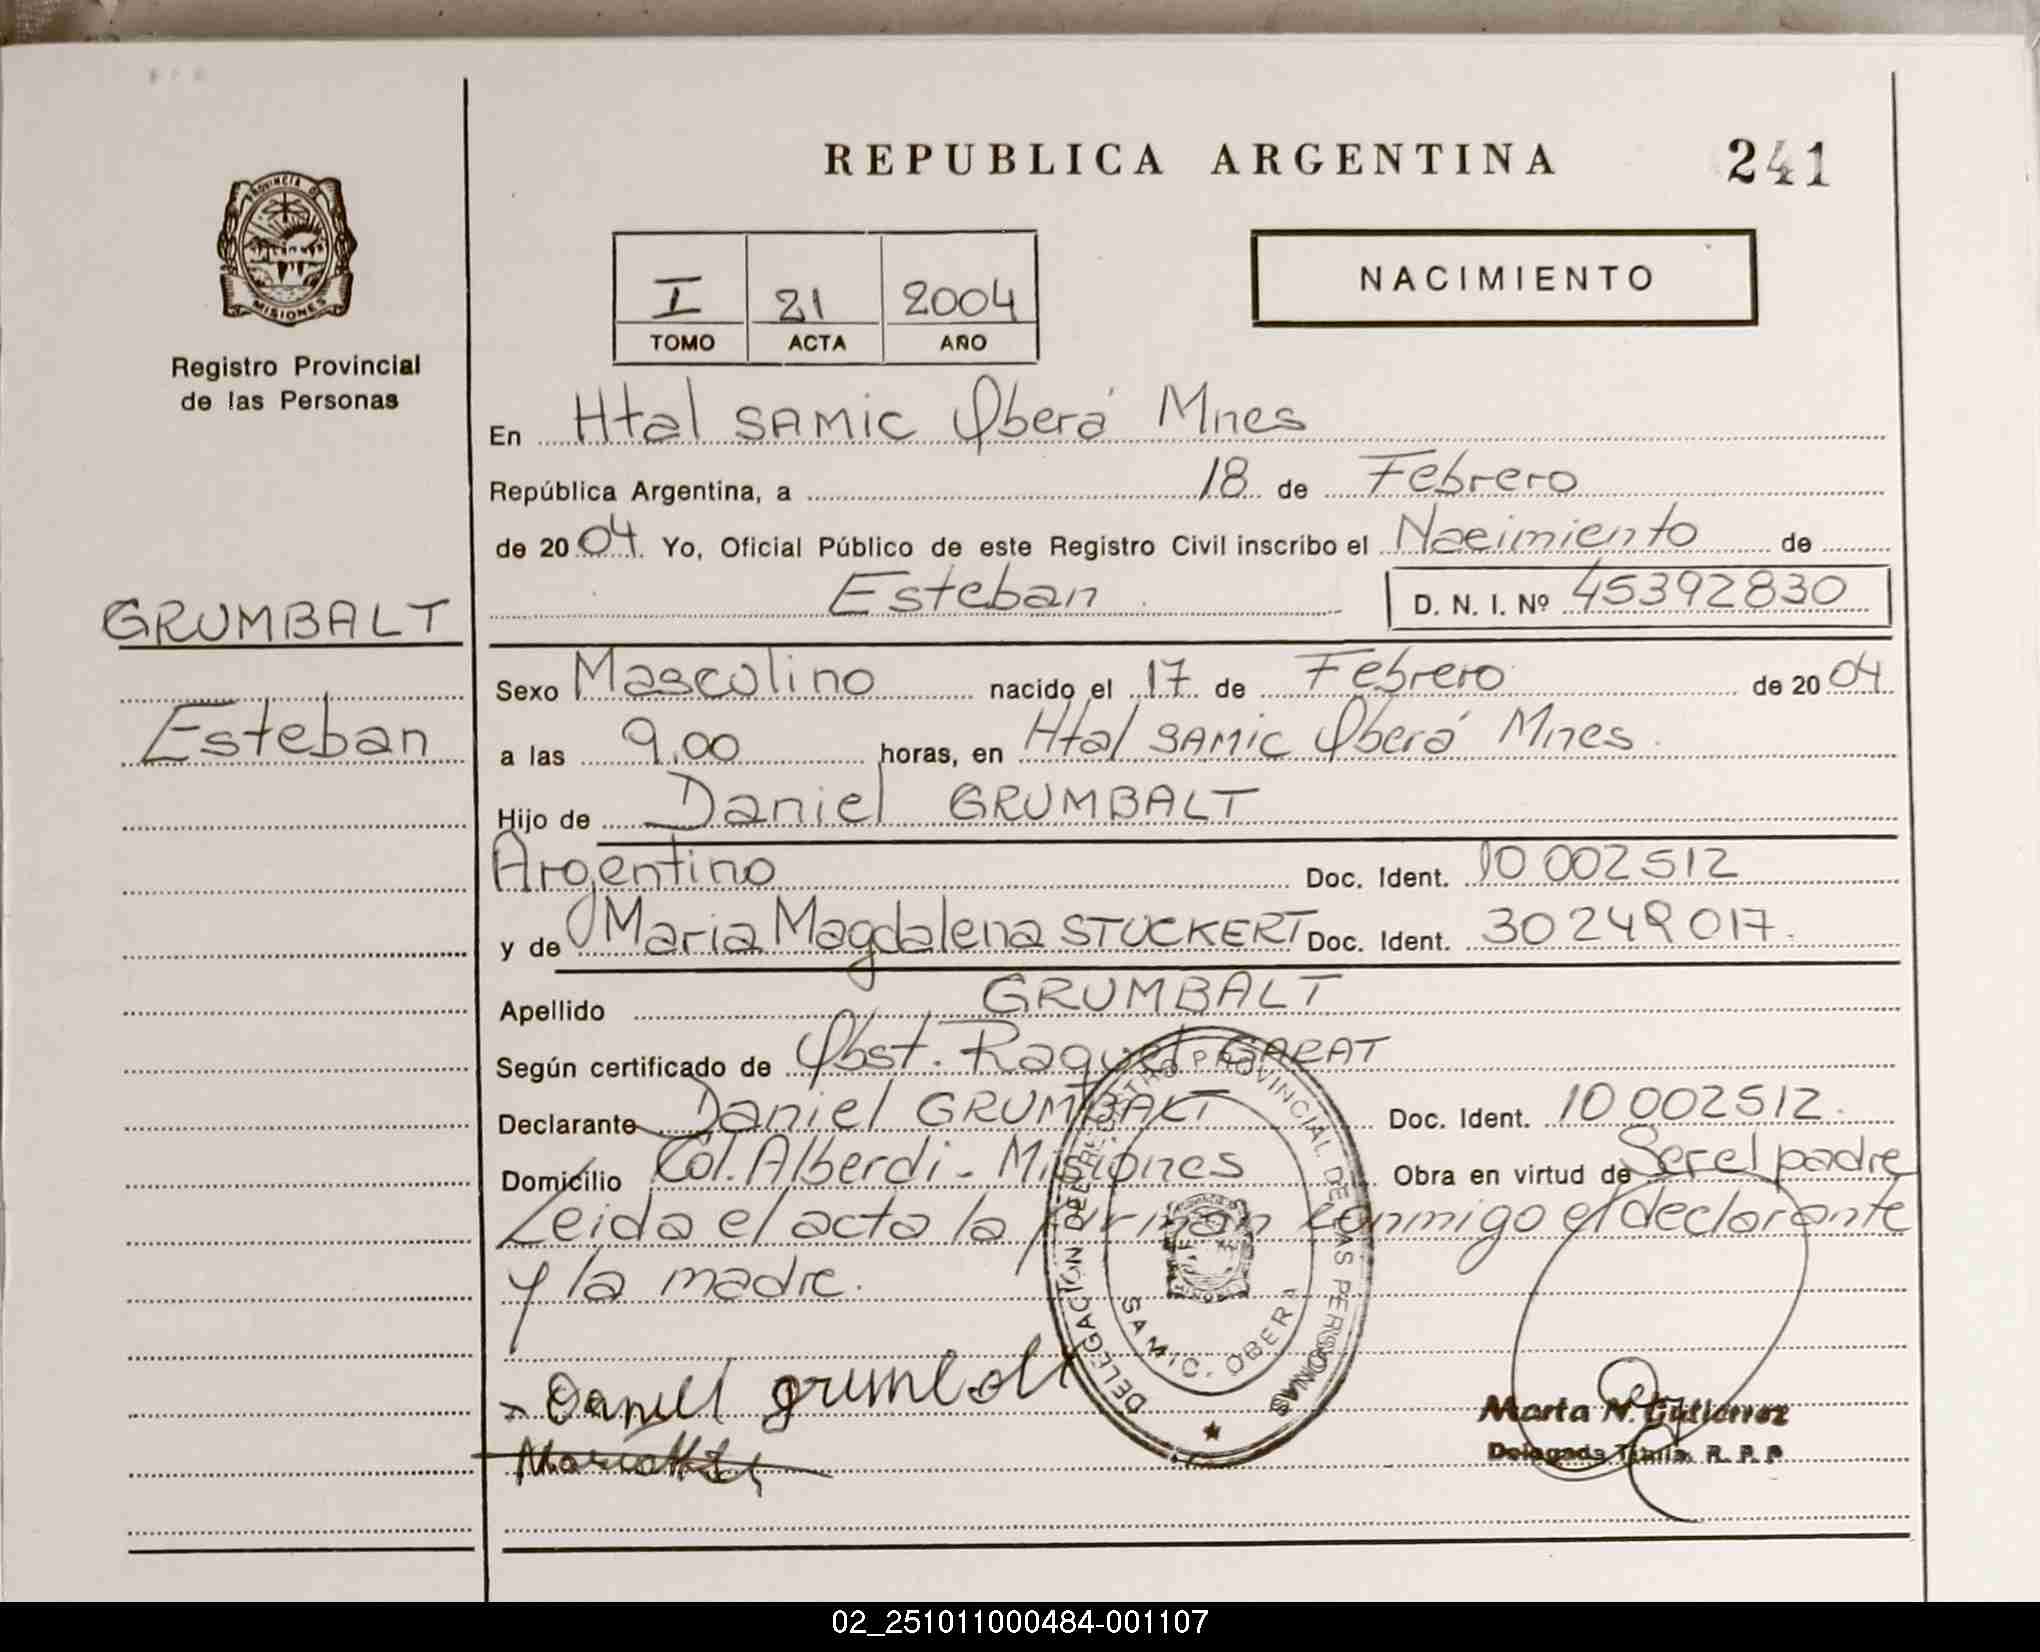 REPUBLICA ARGENTINA
241
PROVINCIA DE
MISIONES
Registro Provincial
de las Personas
I 21 2004
TOMO ACTA AÑO
NACIMIENTO
En Htal SAMIC Oberá Mnes
República Argentina, a 18 de Febrero
de 2004. Yo, Oficial Público de este Registro Civil inscribo el Nacimiento de
Esteban D. N. I. Nº 45392830
GRUMBALT
Esteban
Sexo Masculino nacido el 17 de Febrero de 2004
a las 9.00 horas, en Htal SAMIC Oberá Mnes.
Hijo de Daniel GRUMBALT
Argentino Doc. Ident. 10 002512
y de Maria Magdalena STUCKERT Doc. Ident. 30 249 017.
Apellido GRUMBALT
Según certificado de Obst. Raquel GARAT
Declarante Daniel GRUMBALT Doc. Ident. 10 002512.
Domicilio Col. Alberdi - Misiones Obra en virtud de Ser el padre
Leida el acta la firman conmigo el declarante
y la madre.
DELEGACION DEL REGISTRO PROVINCIAL DE LAS PERSONAS
SAMIC. OBERA
Marta N. Gutierrez
Delegada Titular R. P. P
02_251011000484-001107